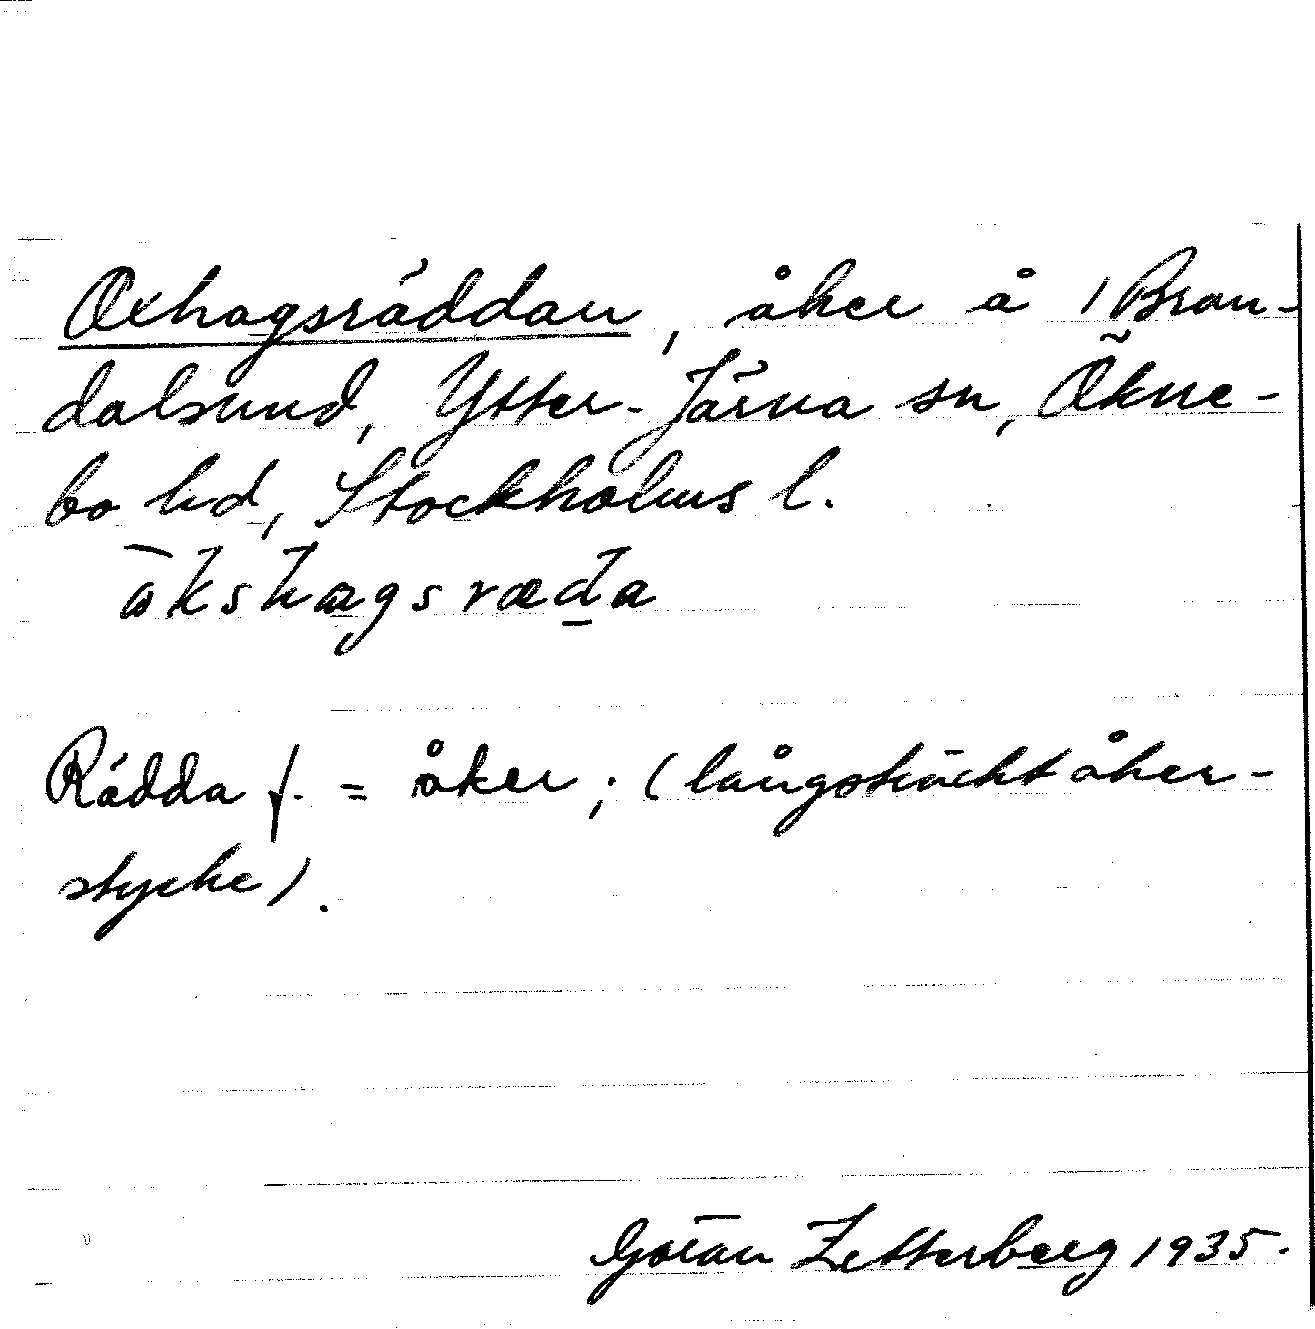 Oxhagsräddan, åker å 1 Bran-
dalsund, Ytter-Järna sn, Ökne-
bo hd, Stockholms l.
Rädda f. = åker; (långsträckt åker-
stycke).
Göran Zetterberg 1935.